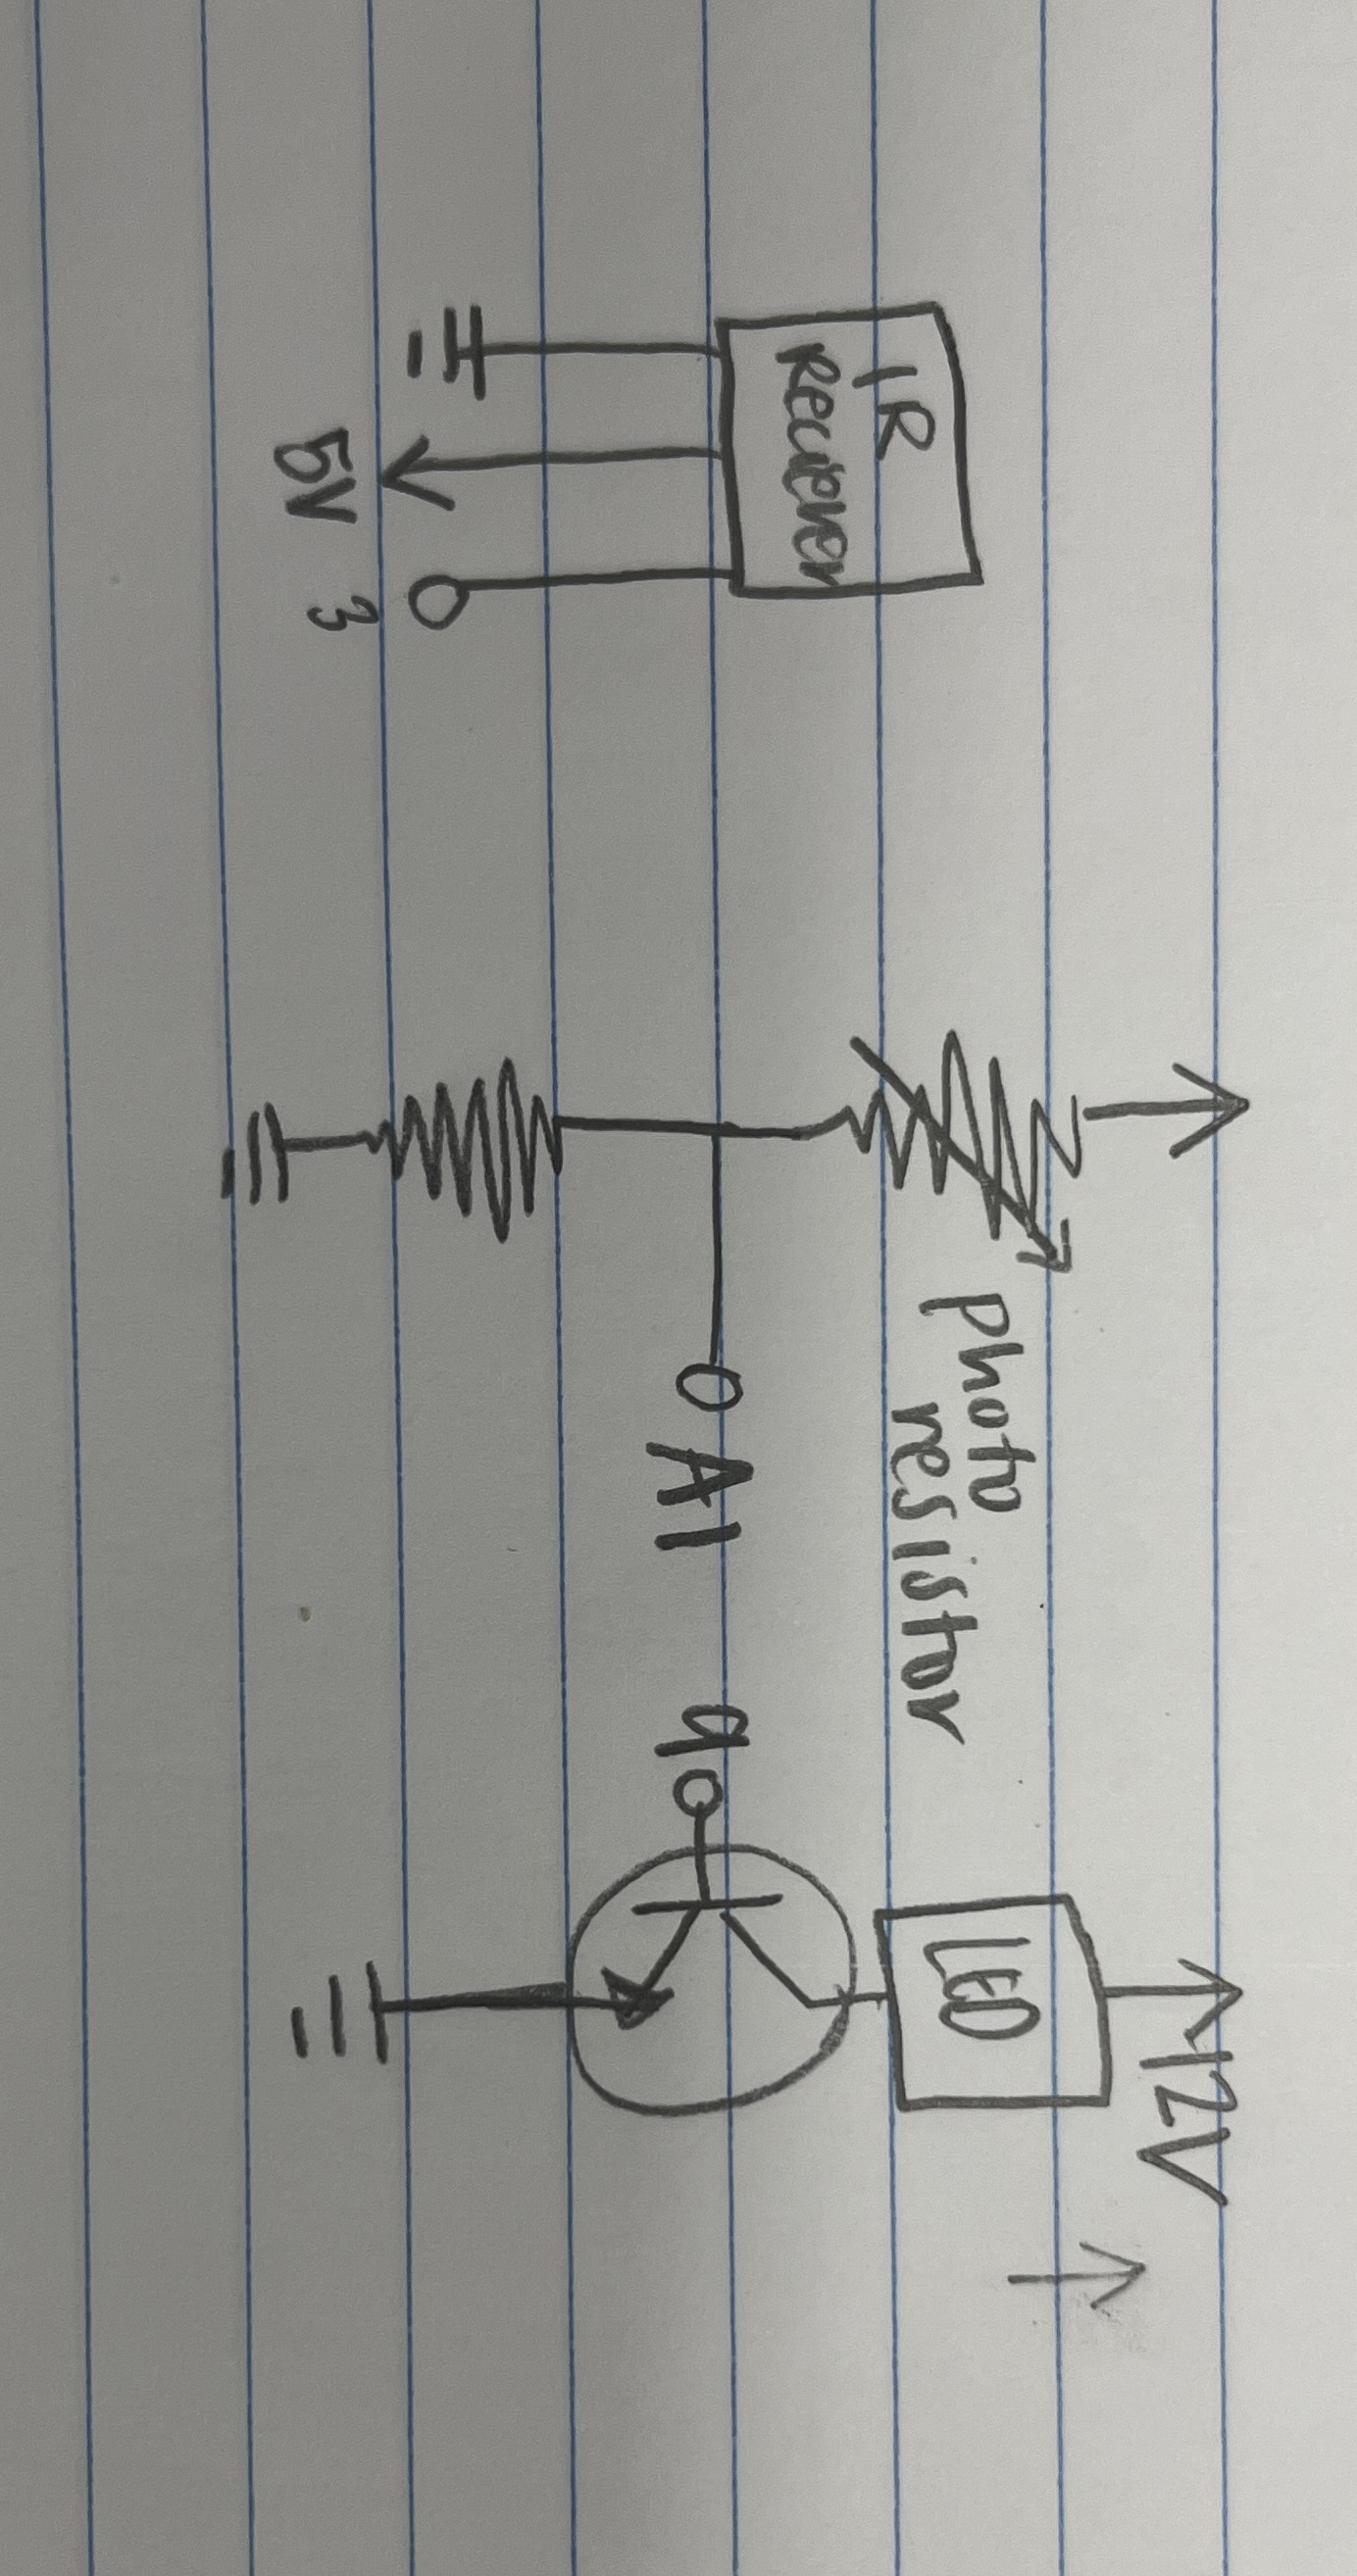 IR
Reciever
5V
3
photo
resistor
A1
9
LED
12V